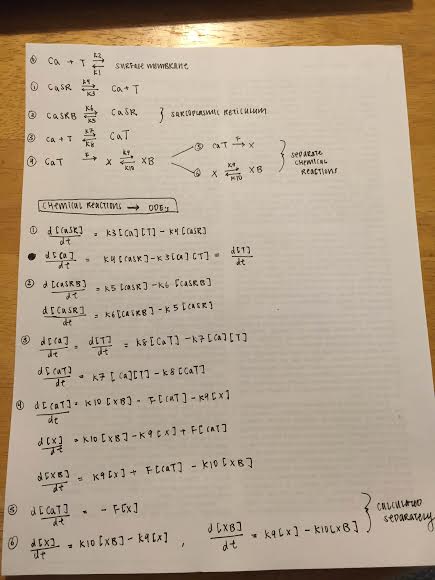 ⓪ Ca + T ⇌ K2 K1 SURFACE MEMBRANE
① CaSR ⇌ K4 K3 Ca + T
② CaSRB ⇌ K6 K5 CaSR } SARCOPLASMIC RETICULUM
③ Ca + T ⇌ K7 K8 CaT
④ CaT →F X ⇌ K9 K10 XB
⑤ CaT →F X
⑥ X ⇌ K9 K10 XB
} SEPARATE CHEMICAL REACTIONS
CHEMICAL REACTIONS → ODEs
① d[CaSR]/dt = K3[Ca][T] - K4[CaSR]
d[Ca]/dt = K4[CaSR] - K3[Ca][T] = d[T]/dt
② d[CaSRB]/dt = K5[CaSR] - K6[CaSRB]
d[CaSR]/dt = K6[CaSRB] - K5[CaSR]
③ d[Ca]/dt = d[T]/dt = K8[CaT] - K7[Ca][T]
d[CaT]/dt = K7[Ca][T] - K8[CaT]
④ d[CaT]/dt = K10[XB] - F[CaT] - K9[X]
d[X]/dt = K10[XB] - K9[X] + F[CaT]
d[XB]/dt = K9[X] + F[CaT] - K10[XB]
⑤ d[CaT]/dt = - F[X]
⑥ d[X]/dt = K10[XB] - K9[X] , d[XB]/dt = K9[X] - K10[XB]
} CALCULATED SEPARATELY